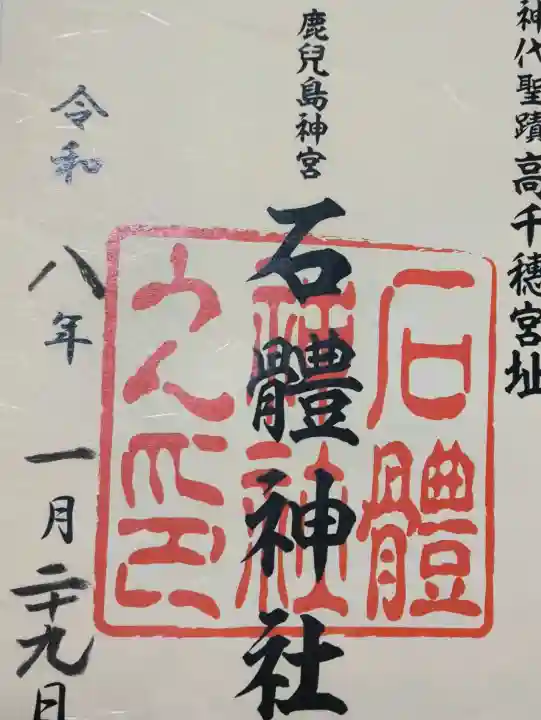 神代聖蹟高千穂宮址
鹿兒島神宮
石體神社
令和八年一月二十九日
石體
神社